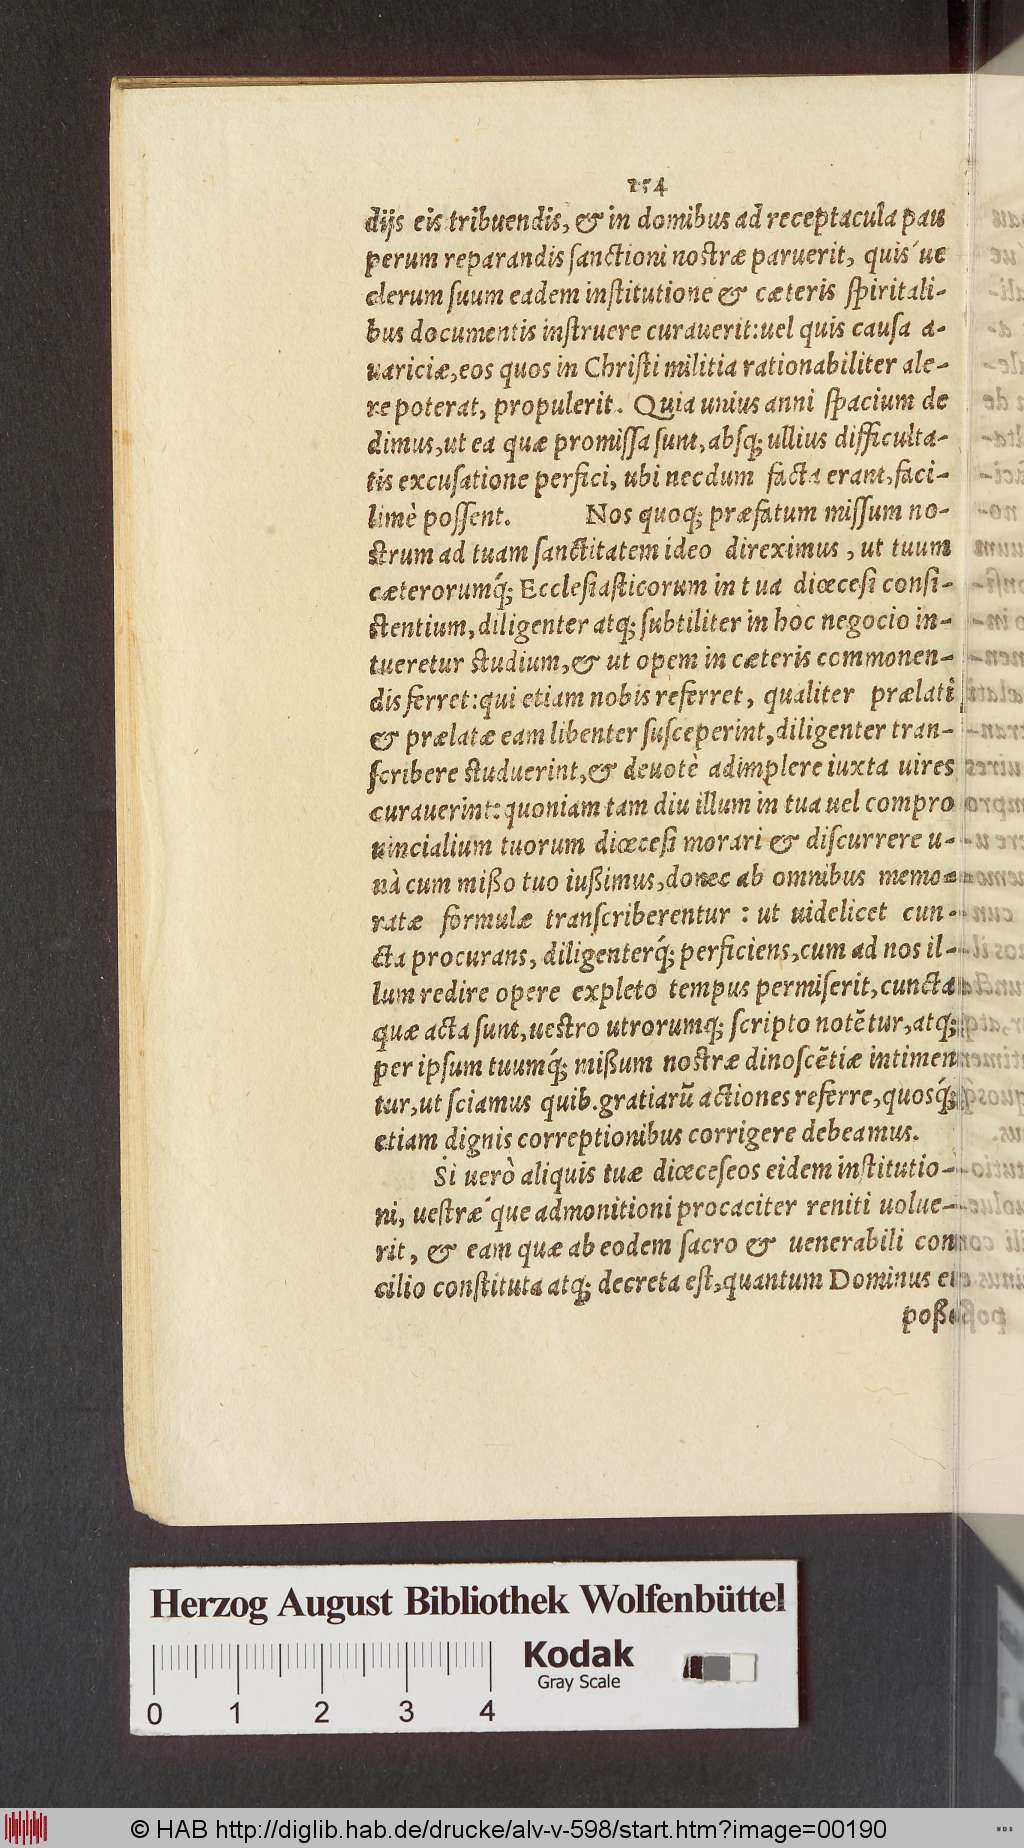 254
dijs eis tribuendis, & in domibus ad receptacula pau
perum reparandis ſanctioni noſtræ paruerit, quis´ue
clerum ſuum eadem inſtitutione & cæteris ſpiritali-
bus documentis inſtruere curauerit:uel quis cauſa a-
uariciæ,eos quos in Chriſti militia rationabiliter ale-
re poterat, propulerit. Quia unius anni ſpacium de
dimus,ut ea quæ promiſſa ſunt,abſq; ullius difficulta-
tis excuſatione perfici, ubi necdum facta erant,faci-
limè poſſent. Nos quoq; præfatum miſſum no-
ſtrum ad tuam ſanctitatem ideo direximus , ut tuum
cæterorumq́; Eccleſiaſticorum in tua diœceſi conſi-
ſtentium,diligenter atq; ſubtiliter in hoc negocio in-
tueretur ſtudium,& ut opem in cæteris commonen-
dis ferret:qui etiam nobis referret, qualiter prælati
& prælatæ eam libenter ſuſceperint,diligenter tran-
ſcribere ſtuduerint,& deuotè adimplere iuxta uires
curauerint: quoniam tam diu illum in tua uel compro
uincialium tuorum diœceſi morari & diſcurrere u-
nà cum mißo tuo iußimus,donec ab omnibus memo-
ratæ formulæ tranſcriberentur : ut uidelicet cun-
cta procurans, diligenterq́; perficiens,cum ad nos il-
lum redire opere expleto tempus permiſerit,cuncta
quæ acta ſunt,ueſtro utrorumq; ſcripto notẽtur,atq;
per ipſum tuumq́; mißum noſtræ dinoſcẽtiæ intimen
tur,ut ſciamus quib.gratiarũ actiones referre,quosq́;
etiam dignis correptionibus corrigere debeamus.
Si uerò aliquis tuæ diœceſeos eidem inſtitutio-
ni, ueſtræ´que admonitioni procaciter reniti uolue-
rit, & eam quæ ab eodem ſacro & uenerabili con
cilio conſtituta atq; decreta eſt,quantum Dominus ei
poße
Herzog August Bibliothek Wolfenbüttel
Kodak
Gray Scale
0 1 2 3 4
© HAB http://diglib.hab.de/drucke/alv-v-598/start.htm?image=00190